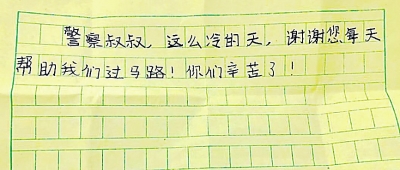 警察叔叔，这么冷的天，谢谢您每天
帮助我们过马路！你们辛苦了！